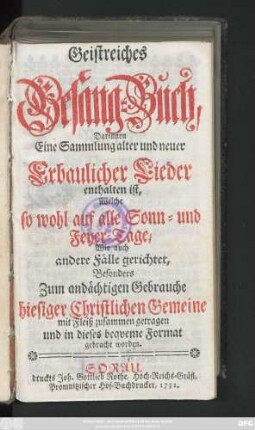 Geistreiches
Gesang-Buch,
Darinnen
Eine Sammlung alter und neuer
Erbaulicher Lieder
enthalten ist,
Welche
so wohl auf alle Sonn- und
Feyer-Tage,
Wie auch
andere Fälle gerichtet,
Besonders
Zum andächtigen Gebrauche
hiesiger Christlichen Gemeine
mit Fleiß zusammen getragen
und in dieses beqveme Format
gebracht worden.
SORAU,
druckts Joh. Gottlieb Rothe, Hoch-Reichs-Gräfl.
Promnitzischer Hof-Buchdrucker,